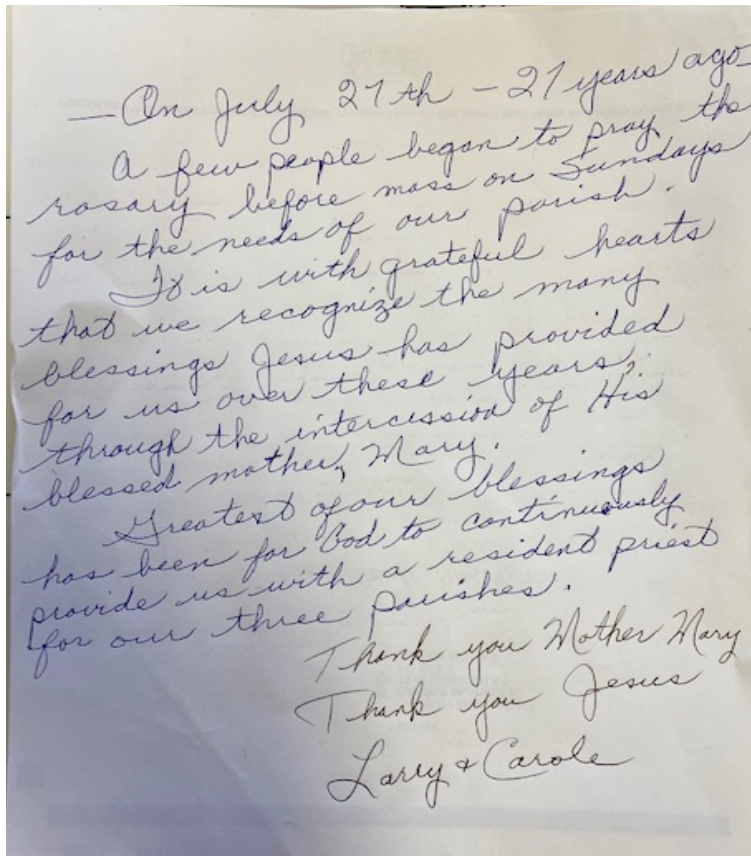 — On July 27th - 27 years ago
a few people began to pray the
rosary before mass on Sundays
for the needs of our parish.
It is with grateful hearts
that we recognize the many
blessings Jesus has provided
for us over these years,
through the intercession of His
blessed mother, Mary.
Greatest of our blessings
has been for God to continuously
provide us with a resident priest
for our three parishes.
Thank you Mother Mary
Thank you Jesus
Larry & Carole